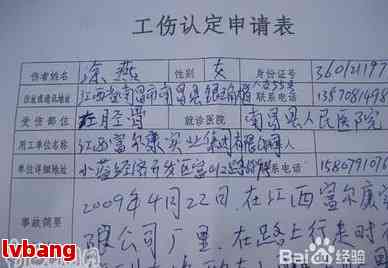 工伤认定申请表
伤者姓名 涂燕 性别 女 身份证号 360121197
住址或通讯地址 江西省南昌市南昌县 联系电话 1357081498
受伤部位 左胫 就诊医院 南昌县人民医院
用工单位名称 江西富尔康实业 有限公司
单位详细地址 小蓝经济开发区富山 路 联系电话 1580791016
2009年4月22日,在江西富尔康实
事故简要 限公司厂里,在路上行走时
lvbang
Baidu 经验